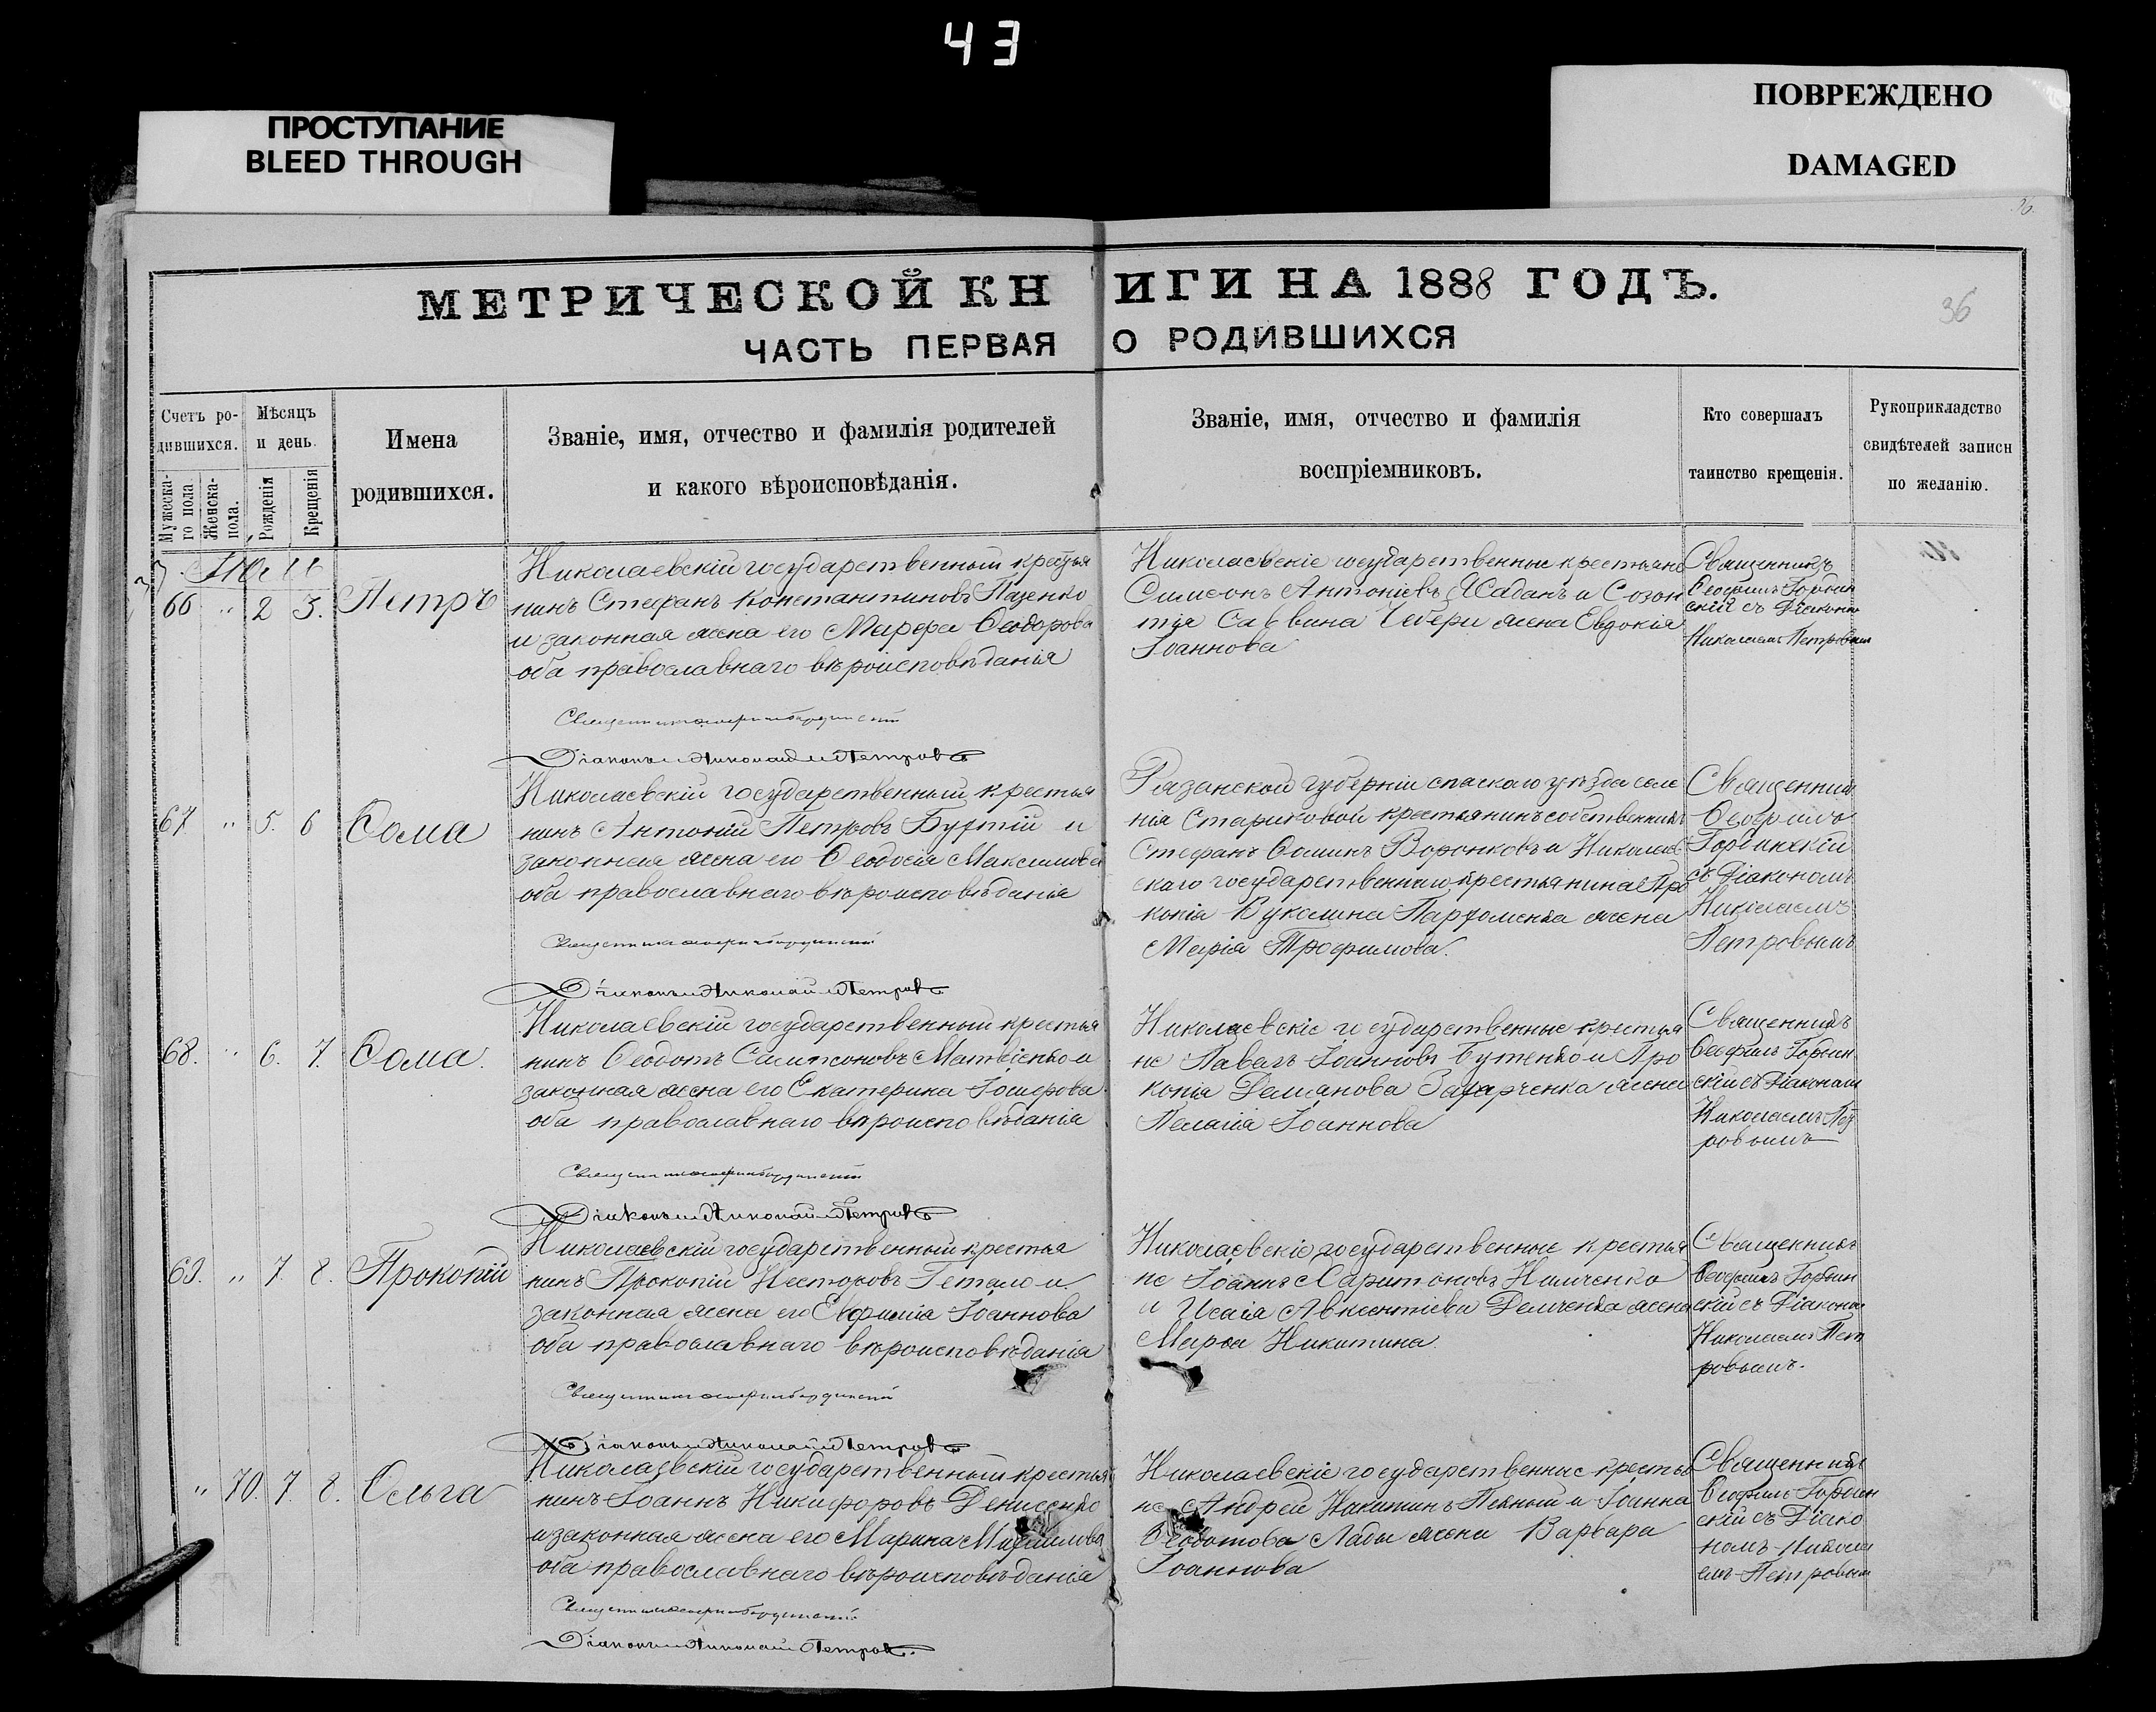 43
ПРОСТУПАНИЕ
BLEED THROUGH
ПОВРЕЖДЕНО
DAMAGED
36
МЕТРИЧЕСКОЙ КНИГИ НА 1888 ГОДЪ.
ЧАСТЬ ПЕРВАЯ О РОДИВШИХСЯ
36
Счетъ ро-
дившихся.
Мужеска-
го пола.
Женска-
пола.
Мѣсяцъ
и день.
Рожденія
Крещенія
Имена
родившихся.
Званіе, имя, отчество и фамилія родителей
и какого вѣроисповѣданія.
Званіе, имя, отчество и фамилія
воспріемниковъ.
Кто совершалъ
таинство крещенія.
Рукоприкладство
свидѣтелей записи
по желанію.
66 " 2 3. Петръ
Николаевскій государственный крестья
нинъ Стефанъ Константиновъ Пазенко
и законная жена его Марѳа Ѳеодорова
оба православнаго вѣроисповѣданія
Діаконъ Николай Петровъ
Николаевскіе государственные крестьяне
Симеонъ Антоніевъ Жаданъ и Созон
тія Саввина жена Евдокія
Іоаннова
Священникъ
Ѳеофилъ Гордин
скій съ Діакономъ
Николаемъ Петровымъ
67 " 5. 6 Ѳома
Николаевскій государственный крестья
нинъ Антоній Петровъ и
законная жена его Ѳеодосія Максимова
оба православнаго вѣроисповѣданія
Діаконъ Николай Петровъ
Рязанской губерніи спаскаго уѣзда селе
нія Стариковой крестьянинъ собственникъ
Стефанъ Ѳоминъ Воронковъ и Николаев
скаго государственнаго крестьянина Про
копія Вуколина Парфоменка жена
Марія Трофимова.
Священникъ
Ѳеофилъ
Гординскій
съ Діакономъ
Николаемъ
Петровымъ
68. " 6. 7. Ѳома.
Николаевскій государственный крестья
нинъ Ѳеодотъ Сампсоновъ Матвіенко и
законная жена его Екатерина Іосифова
оба православнаго вѣроисповѣданія
Діаконъ Николай Петровъ
Николаевскіе государственные крестья
не Павелъ Іоанновъ Бутенко и Про
копія Демянова Захарченка жена
Пелагія Іоаннова
Священникъ
Ѳеофилъ Гордин
скій съ Діакономъ
Николаемъ Пет
ровымъ
69. " 7. 8. Прокопій
Николаевскій государственный крестья
нинъ Прокопій Несторовъ Гетало и
законная жена его Евфимія Іоаннова
оба православнаго вѣроисповѣданія
Діаконъ Николай Петровъ
Николаевскіе государственные крестья
не Іоаннъ Харитоновъ Нимченко
и Исаія Авксентіева Демченка жена
Марѳа Никитина.
Священникъ
Ѳеофилъ Гордин
скій съ Діакономъ
Николаемъ Пет
ровымъ.
" 70. 7. 8. Ольга
Николаевскій государственный крестья
нинъ Іоаннъ Никифоровъ Денисенко
и законная жена его Марина Михаилова
оба православнаго вѣроисповѣданія
Діаконъ Николай Петровъ.
Николаевскіе государственные крестья
не Андрей Никитинъ и Іоанна
Ѳеодотова Лады жена Варвара
Іоаннова
Священникъ
Ѳеофилъ Гордин
скій съ Діако
номъ Никола
емъ Петровымъ